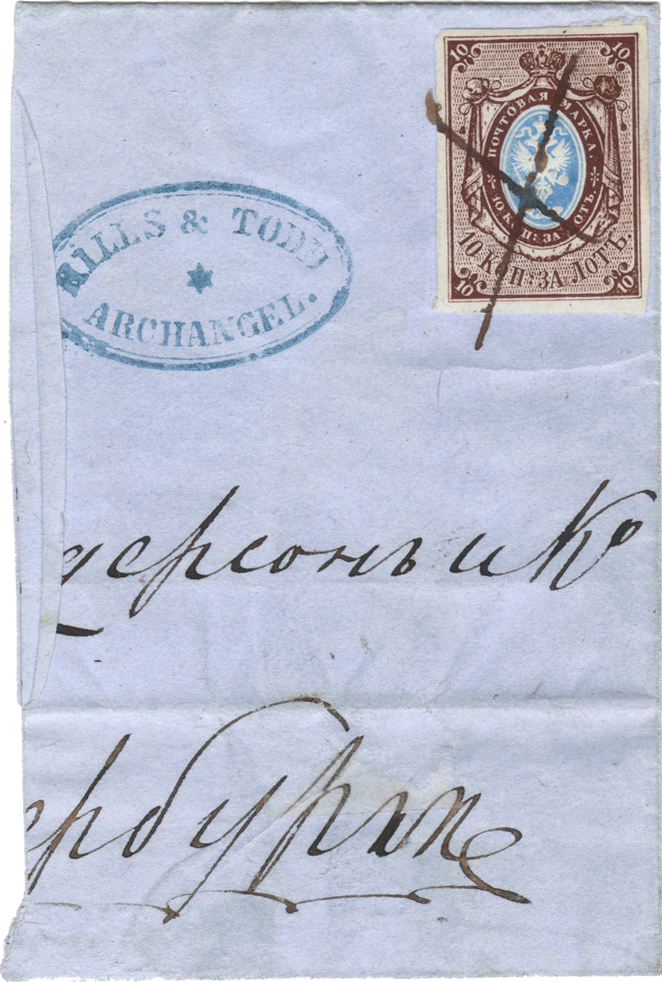 MILLS & TODD
ARCHANGEL.
10 10
ПОЧТОВАЯ МАРКА
10 КОП: ЗА ЛОТЪ.
10 КОП: ЗА ЛОТЪ.
10 10
дерсонъ и Ко
ербургѣ